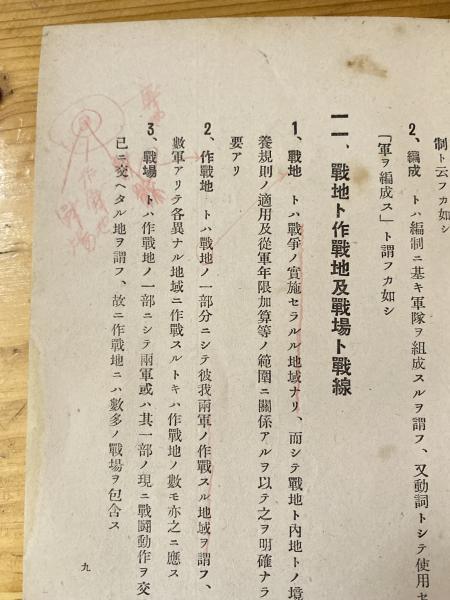 制ト云フカ如シ
2、編成 トハ編制ニ基キ軍隊ヲ組成スルヲ謂フ、又動詞トシテ使用セ
「軍ヲ編成ス」ト謂フカ如シ
二、戰地ト作戰地及戰場ト戰線
1、戰地 トハ戰爭ノ實施セラルル地域ナリ、而シテ戰地ト內地トノ境
養規則ノ適用及從軍年限加算等ノ範圍ニ關係アルヲ以テ之ヲ明確ナラ
要アリ
2、作戰地 トハ戰地ノ一部分ニシテ彼我兩軍ノ作戰スル地域ヲ謂フ、
數軍アリテ各異ナル地域ニ作戰スルトキハ作戰地ノ數モ亦之ニ應ス
3、戰場 トハ作戰地ノ一部ニシテ兩軍或ハ其一部ノ現ニ戰鬪動作ヲ交
已ニ交ヘタル地ヲ謂フ、故ニ作戰地ニハ數多ノ戰場ヲ包含ス
九